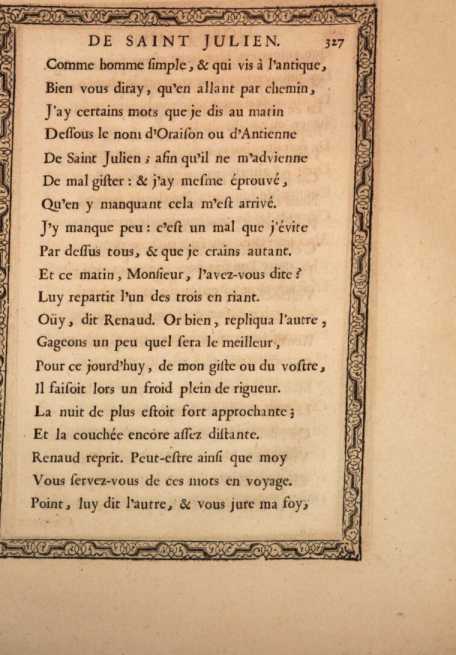 DE SAINT JULIEN. 327
Comme homme ſimple, & qui vis à l'antique,
Bien vous diray, qu'en allant par chemin,
J'ay certains mots que je dis au matin
Deſſous le nom d'Oraiſon ou d'Antienne
De Saint Julien ; afin qu'il ne m'advienne
De mal giſter : & j'ay meſme éprouvé,
Qu'en y manquant cela m'eſt arrivé.
J'y manque peu : c'eſt un mal que j'évite
Par deſſus tous, & que je crains autant.
Et ce matin, Monſieur, l'avez-vous dite ?
Luy repartit l'un des trois en riant.
Oüy, dit Renaud. Or bien, repliqua l'autre,
Gageons un peu quel ſera le meilleur,
Pour ce jourd'huy, de mon giſte ou du voſtre,
Il faiſoit lors un froid plein de rigueur.
La nuit de plus eſtoit fort approchante ;
Et la couchée encore aſſez diſtante.
Renaud reprit. Peut-eſtre ainſi que moy
Vous ſervez-vous de ces mots en voyage.
Point, luy dit l'autre, & vous jure ma foy,